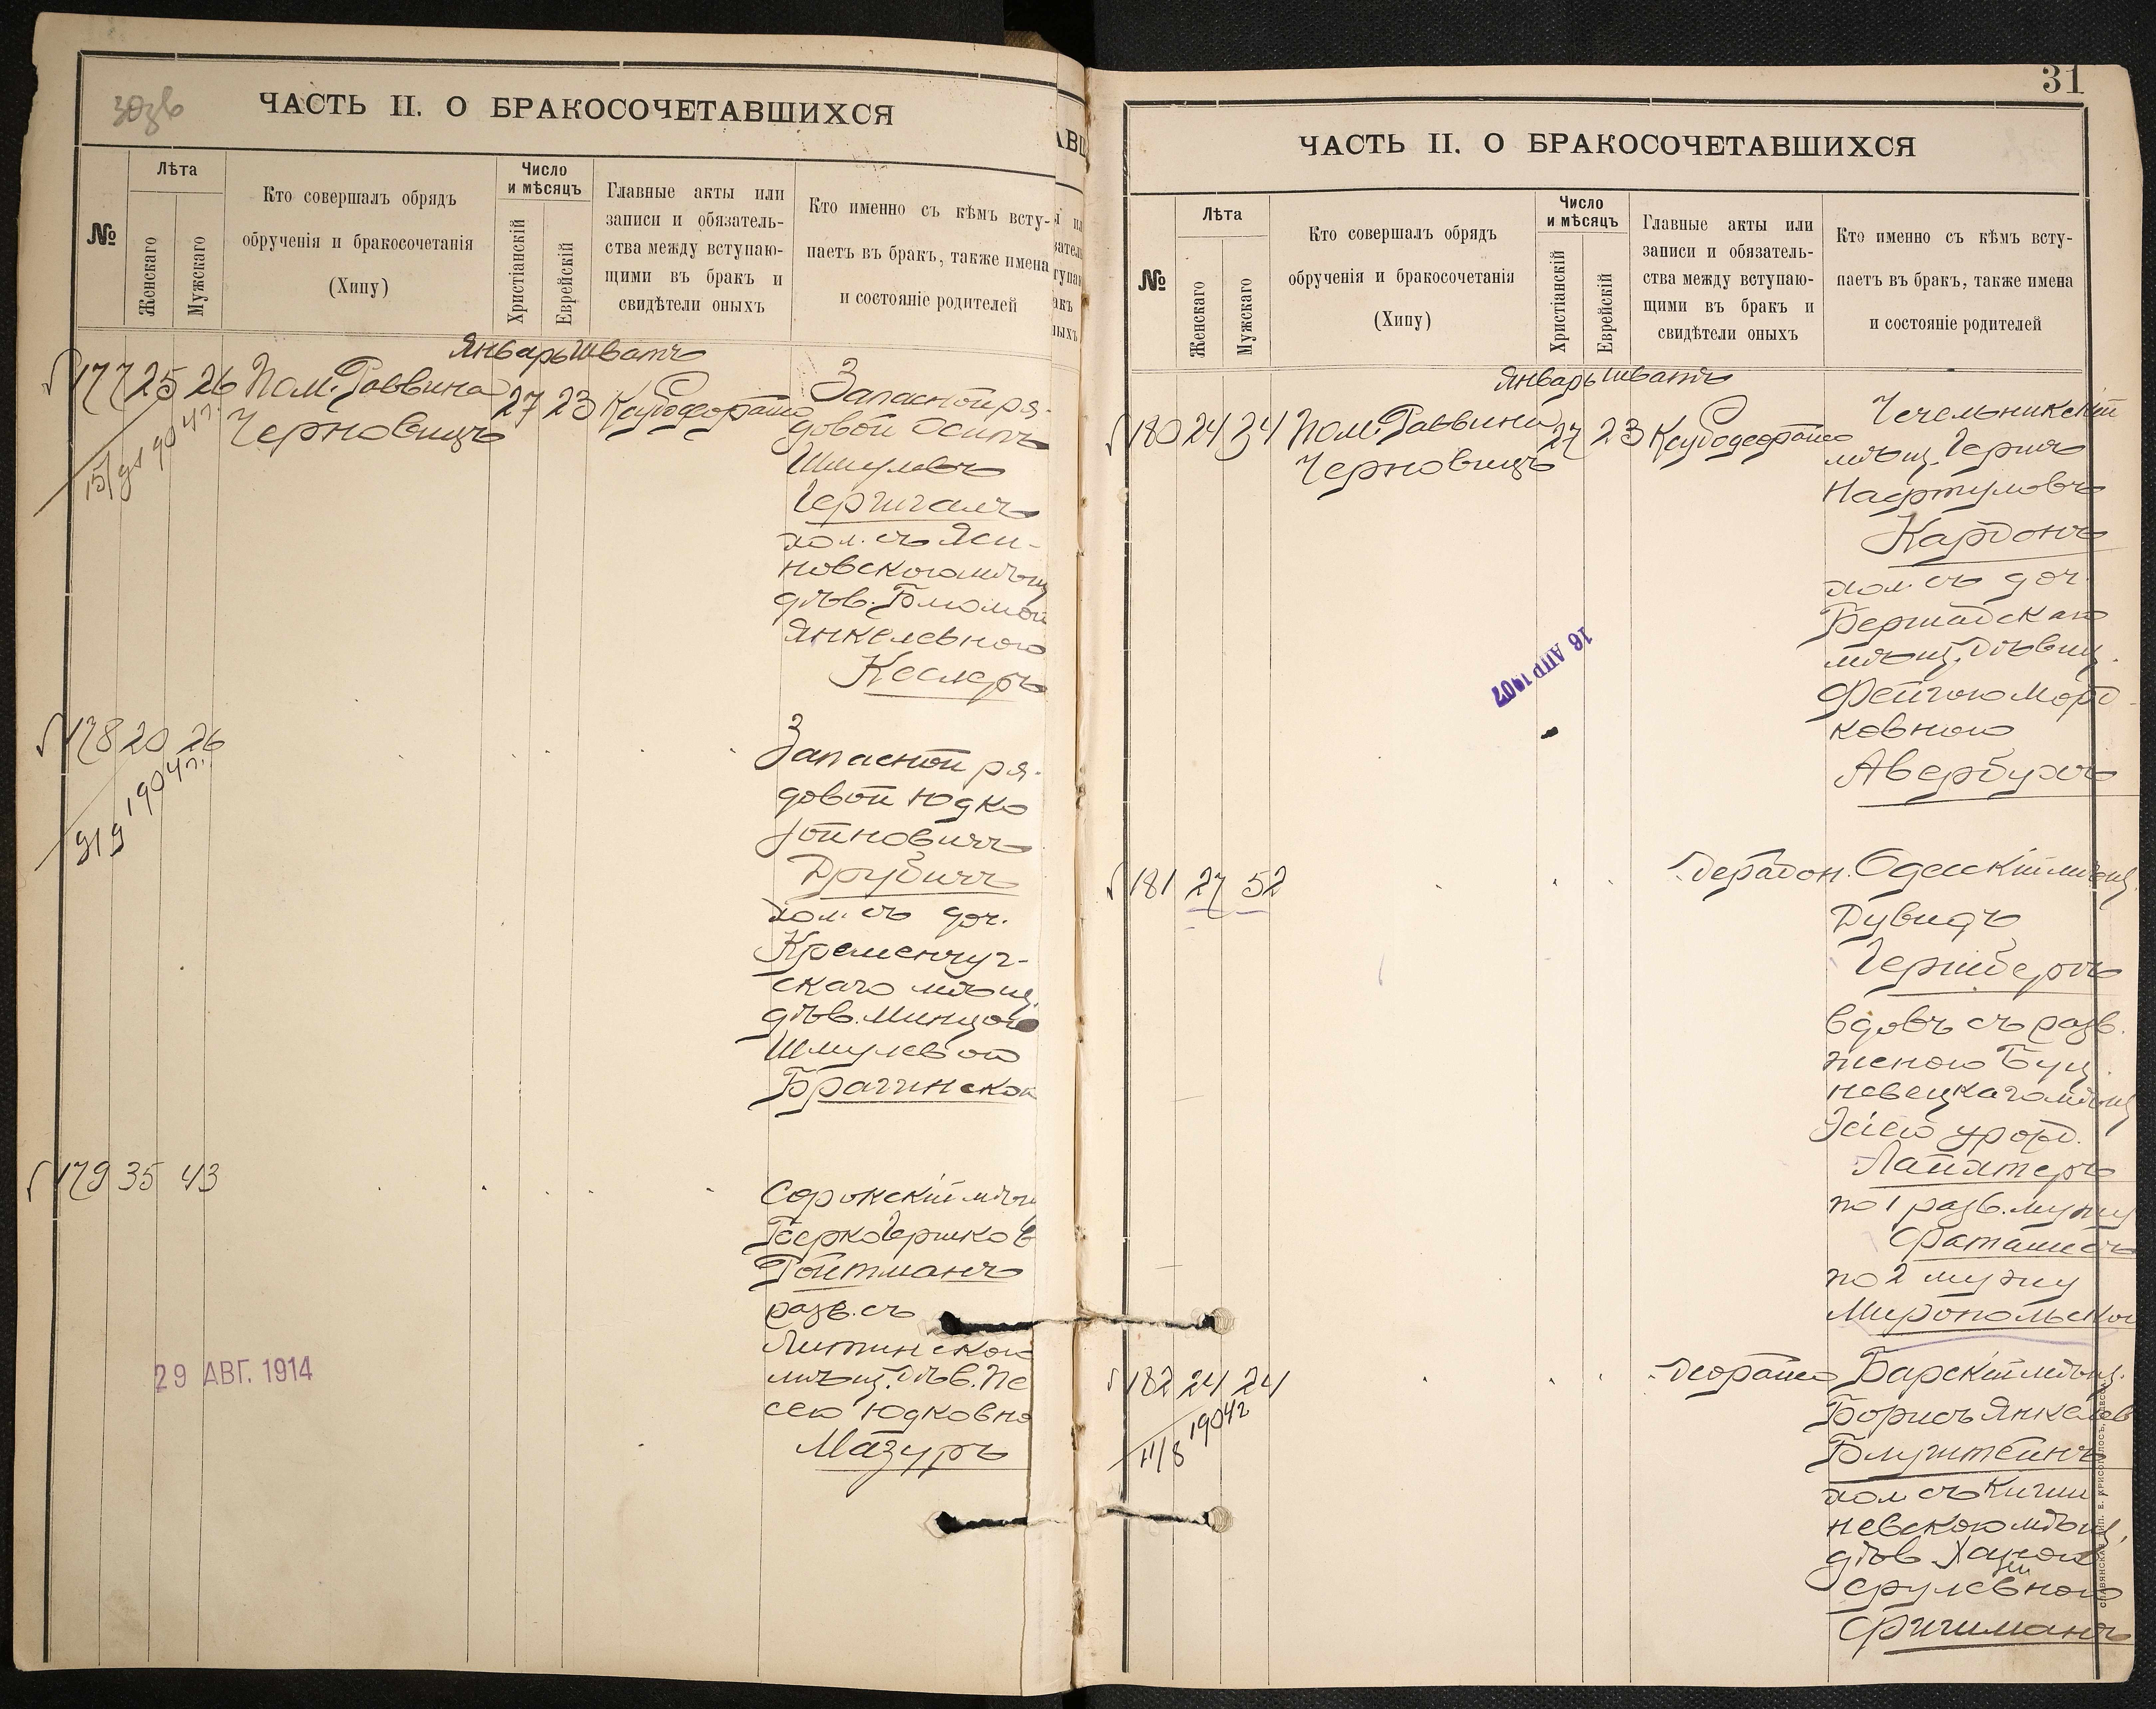 ЧАСТЬ II. О БРАКОСОЧЕТАВШИХСЯ
№
Лѣта
Женскаго
Мужскаго
Кто совершалъ обрядъ
обрученія и бракосочетанія
(Хипу)
Число
и мѣсяцъ
Христіанскій
Еврейскій
Главные акты или
записи и обязатель-
ства между вступаю-
щими въ бракъ и
свидѣтели оныхъ
Кто именно съ кѣмъ всту-
паетъ въ бракъ, также имена
и состояніе родителей
Январь Шватъ
177 25 26 Пом. Раввина 27 23
Черновицъ
15/ 904г.
Запасной ря-
довой Осипъ
Шмулевъ
Гершгалъ
хол. съ Яси-
новскою мѣщ
дѣв. Блюмой
Янкелевною
Кеслеръ
178 20 26
9/9 1904г.
Запасной ря-
довой Юдко
Іойновичъ
Друбичъ
хол. съ доч.
Кременчуг-
скаго мѣщ.
дѣв. Минцою
Шмулевой
Брагинской
179 35 43
Сорокскій мѣщ
Берко Гершков
Ройтманъ
разв. съ
Литинскою
мѣщ. дѣв. Пе
сею Юдковно
Мазуръ
29 АВГ. 1914
31
ЧАСТЬ II. О БРАКОСОЧЕТАВШИХСЯ
№
Лѣта
Женскаго
Мужскаго
Кто совершалъ обрядъ
обрученія и бракосочетанія
(Хипу)
Число
и мѣсяцъ
Христіанскій
Еврейскій
Главные акты или
записи и обязатель-
ства между вступаю-
щими въ бракъ и
свидѣтели оныхъ
Кто именно съ кѣмъ всту-
паетъ въ бракъ, также имена
и состояніе родителей
Январь Шватъ
180 24 34 Пом. Раввина 27 23
Черновицъ
Чечельникскій
мѣщ. Гершъ
Нафтуловъ
Кардонъ
хол. съ доч.
Бершадскаго
мѣщ. Дѣвиц.
Фейгою Морд-
ковною
Авербухъ
16 АПР 1907
181 27 52
Одесскій мѣщ.
Дувидъ
Гершбергъ
вдовъ съ разв.
женою Буц
невецкаго мѣщ
Эсіею урожд.
Лапатеръ
по 1 разв. мужу
по 2 мужу
Миропольской
182 24 24
11/8 1904г
Барскій мѣщ.
Борисъ Янкелев
Блуштейнъ
хол съ Киши
невскою мѣщ,
дѣв. Ханой
Срулевною
Фишманъ
СЛАВЯНСКАЯ ТИП. Е. ХРИСОГЕЛОСЪ, ОДЕССА.